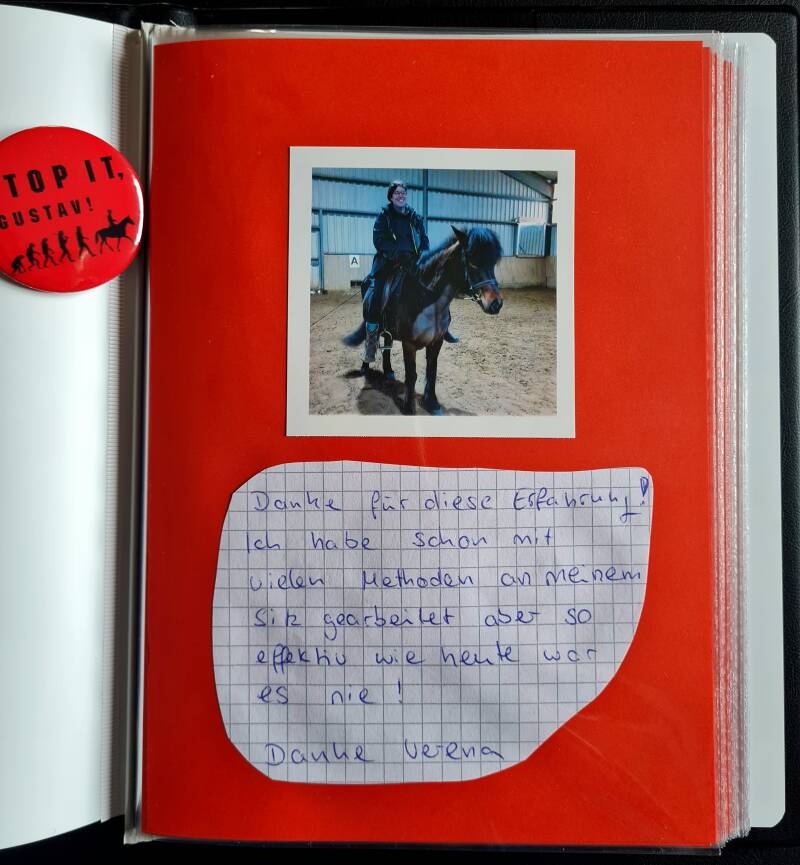 TOP IT,
GUSTAV!
A
Danke für diese Erfahrung!
Ich habe schon mit
vielen Methoden an meinem
Sitz gearbeitet aber so
effektiv wie heute war
es nie!
Danke Verena